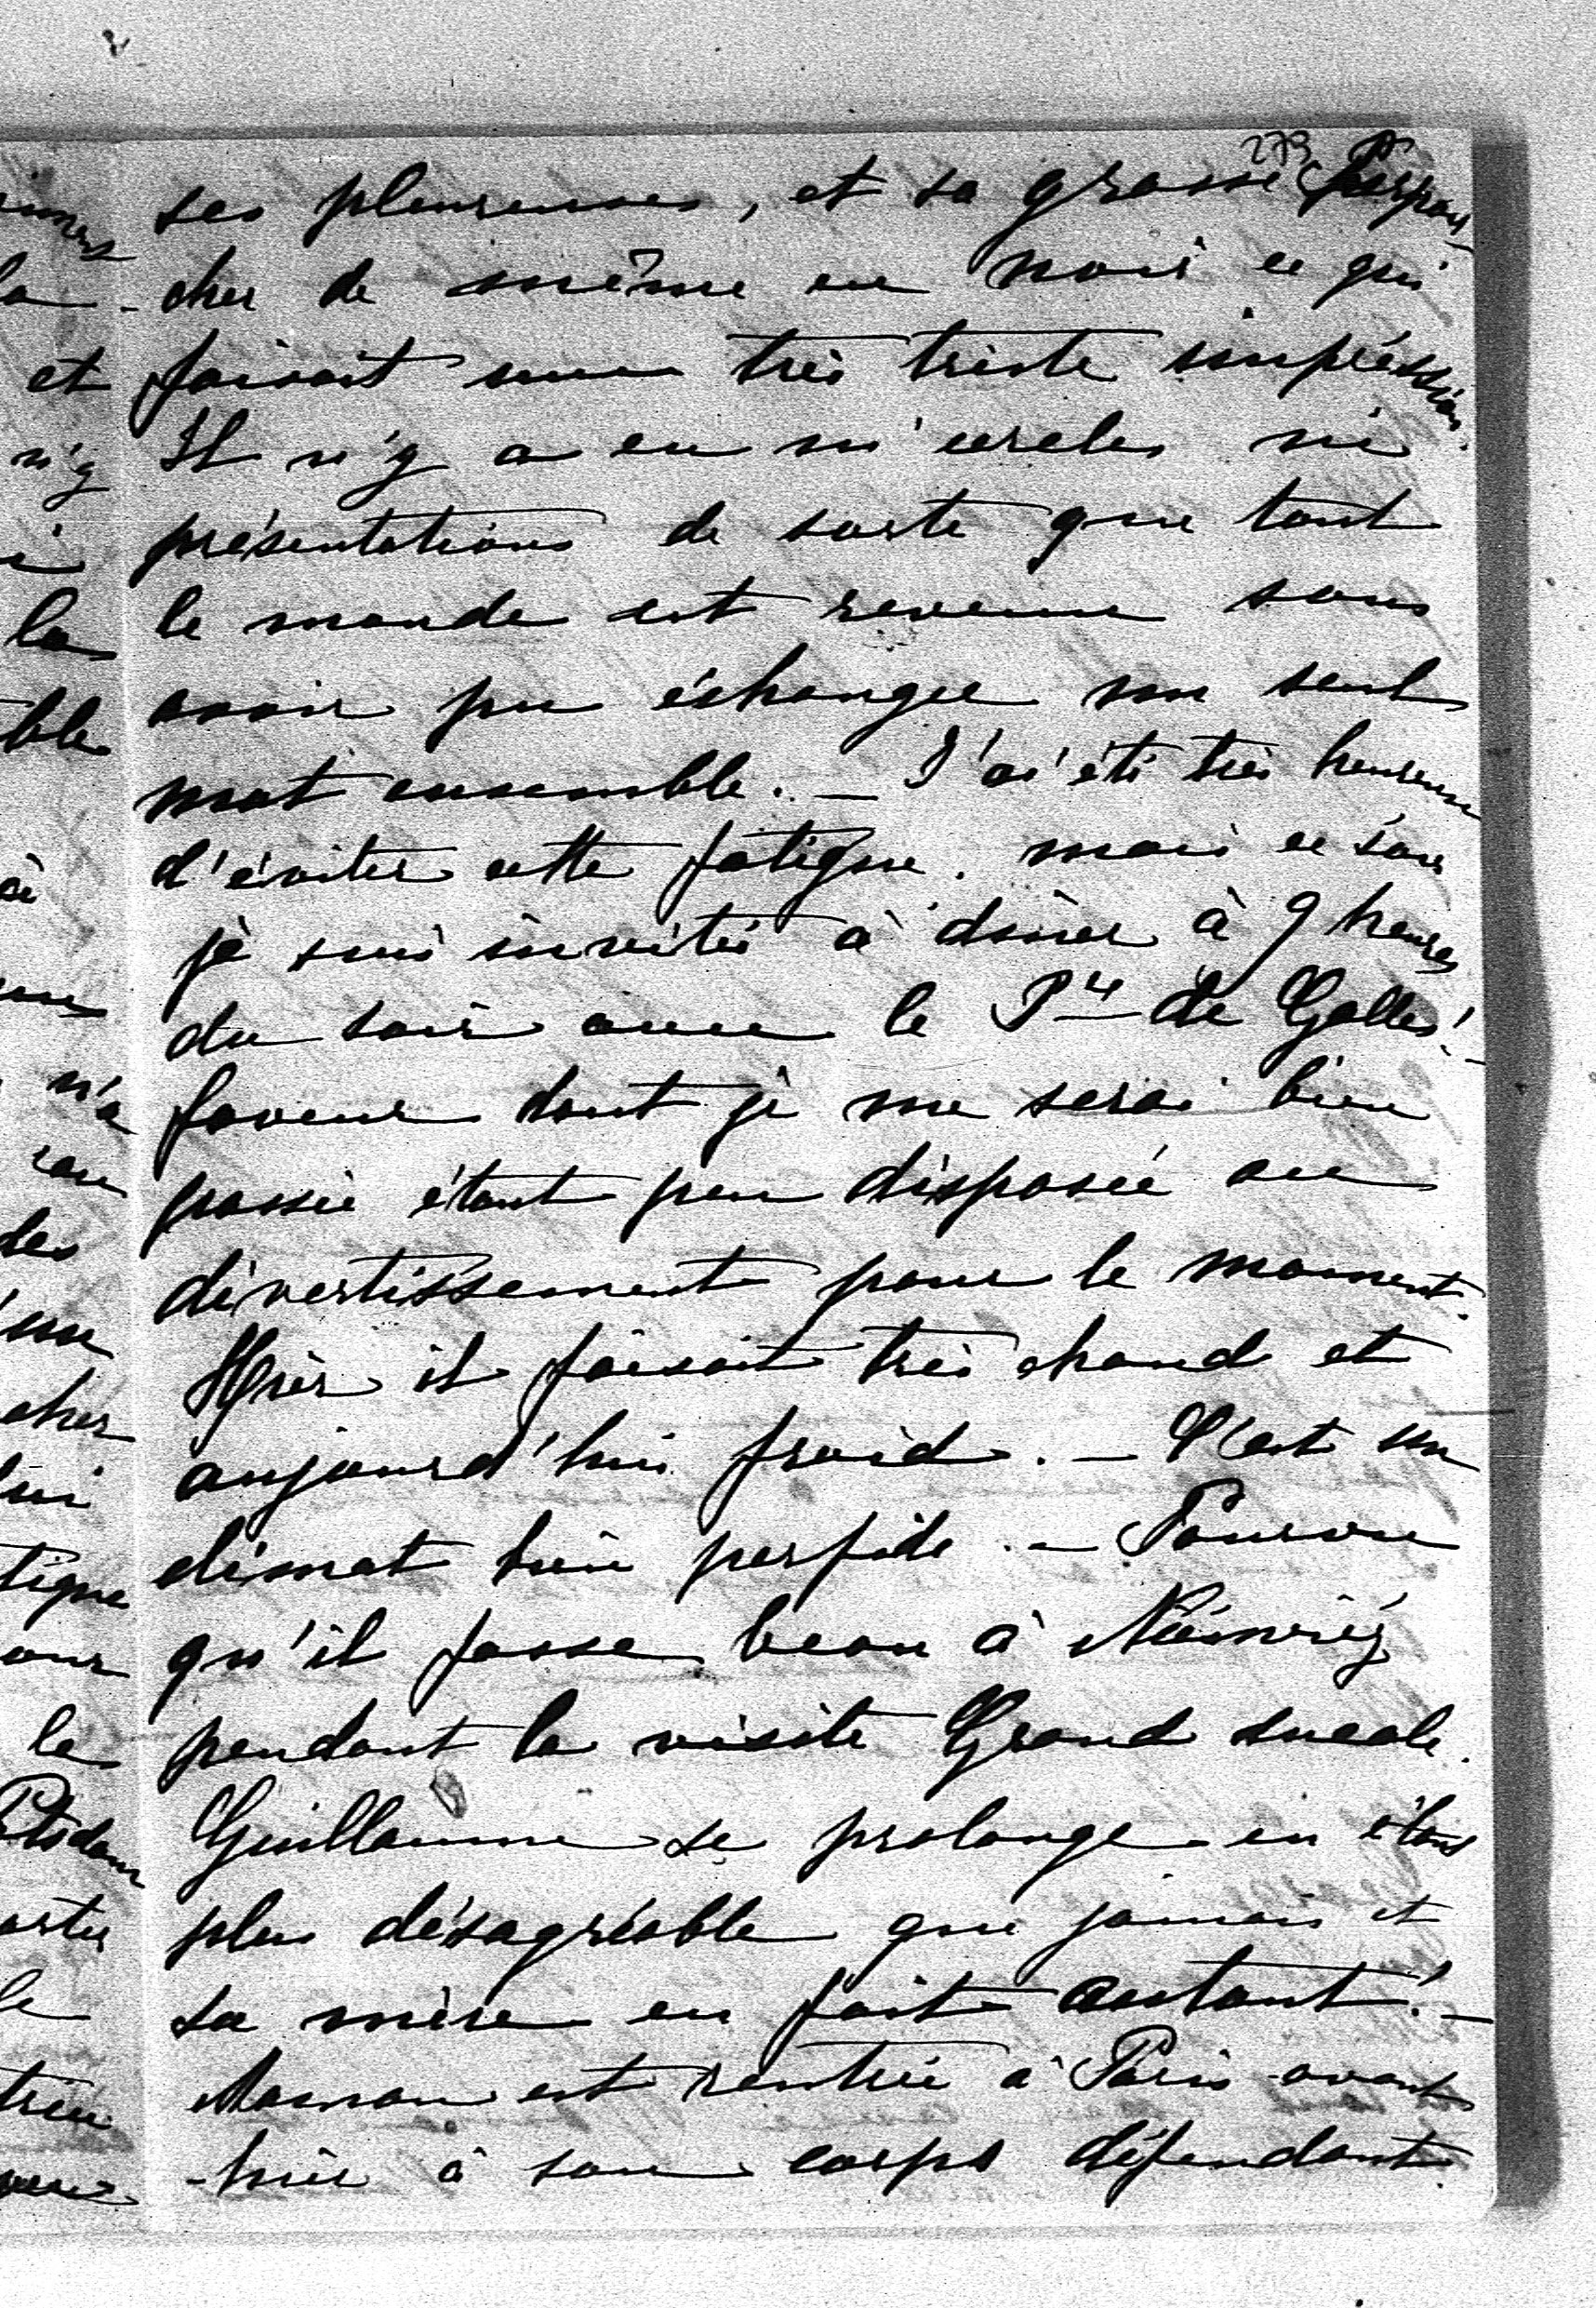 273
ses pleureuses, et sa grosse Perpon-
-cher de même en noir ce qui
faisait une très triste impréssion.
Il n'y a eu ni cercles ni
présentations de sorte que tout
le monde est revenu sans
avoir pu échanger un seul
mot ensemble. — J'ai été très heureuse
d'éviter cette fatigue. mais ce soir
je suis invitée à dîner à 9 heures
du soir avec le Pce de Galles! —
faveur dont je me serai bien
passée étant peu disposée au
divertissement pour le moment.
Hier il faisait très chaud et
aujourd'hui froid. — C'est un
climat bien perfide. — Pourvu
qu'il fasse beau à
pendant la visite Grand ducale.
Guillaume se prolonge en étant
plus désagréable que jamais et
sa mère en fait autant! —
Maman est rentrée à Paris avant
-hier à son corps défendant.